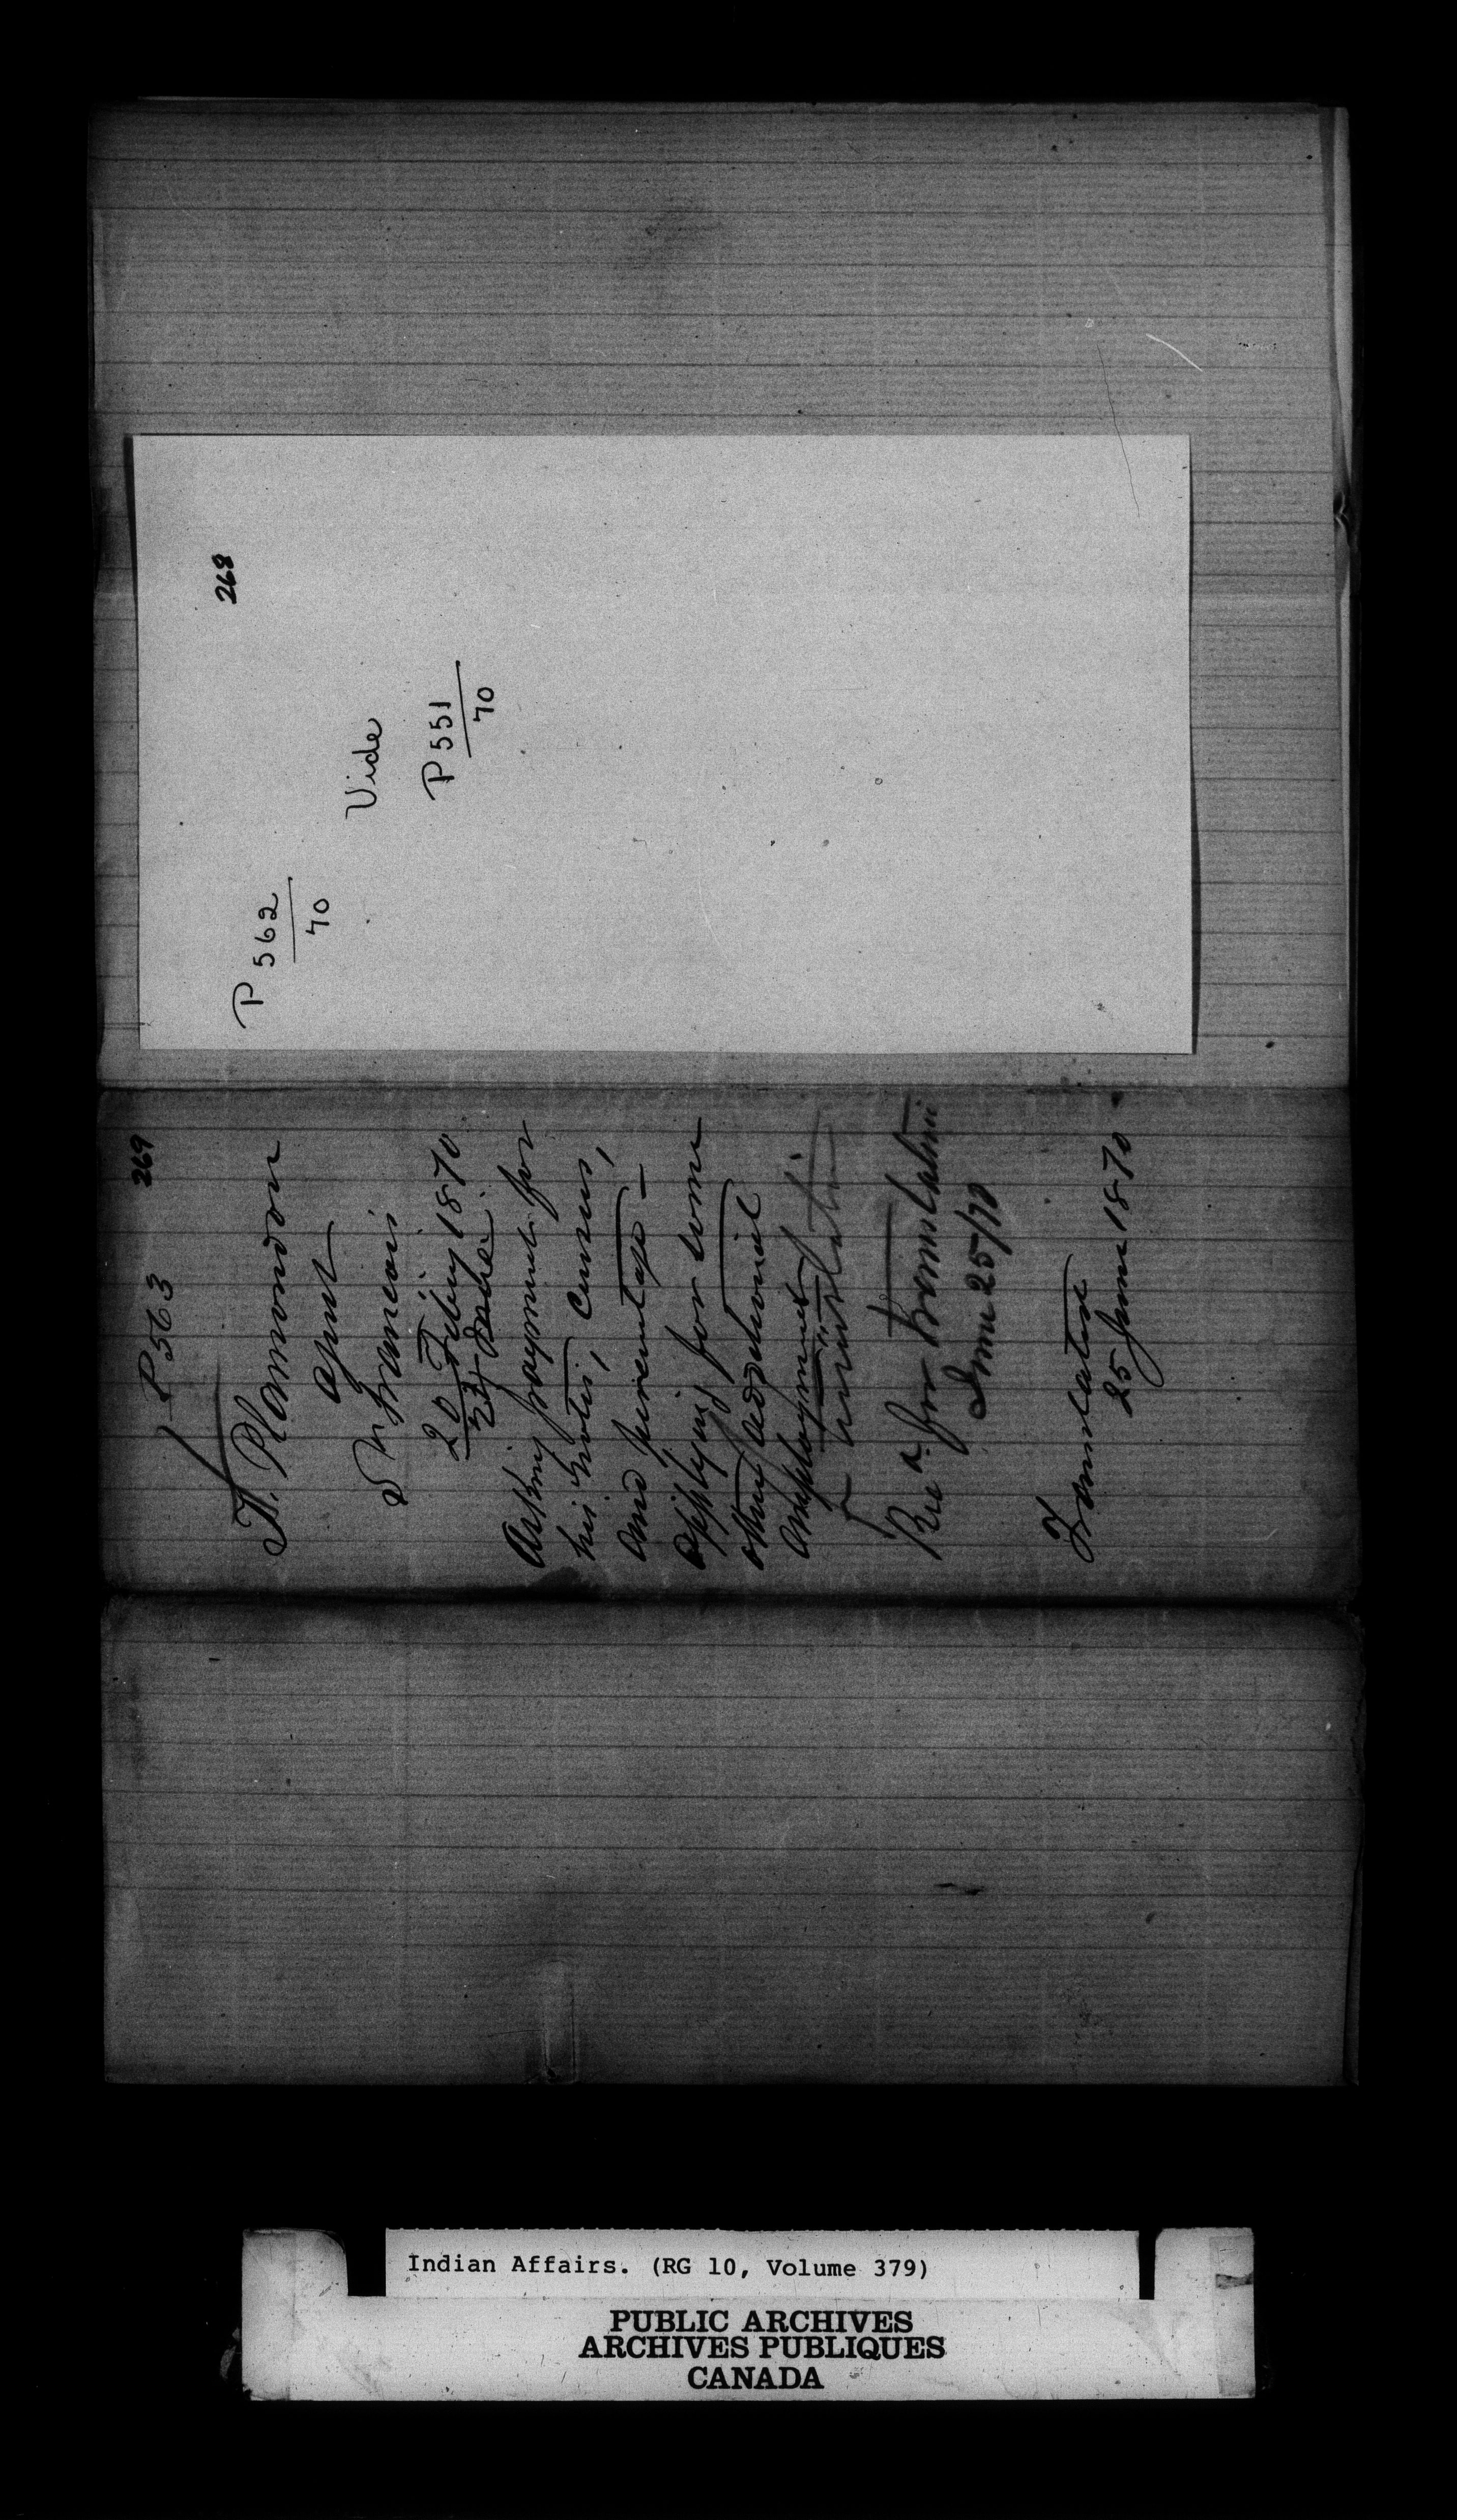 268
P 562
70
Vide
P 551
70
269
P 563
H. Plamondon
agent
St Francois
20 Feby 1870
Asking payment for
his notes, census,
and percentage –
applying for some
other additional
employment
Rec'd for translation
June 25/70
Translation
25 June 1870
Indian Affairs. (RG 10, Volume 379)
PUBLIC ARCHIVES
ARCHIVES PUBLIQUES
CANADA